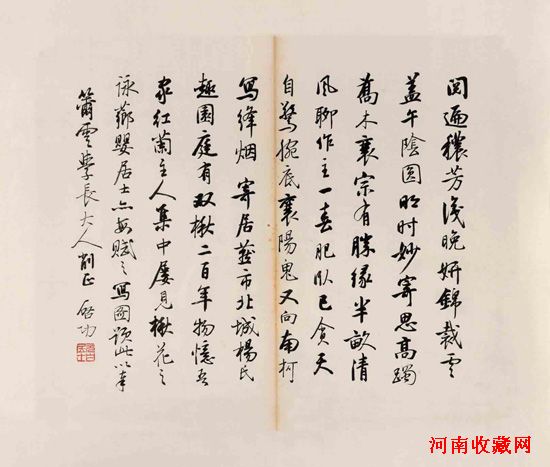 閱遍穠芳淺晚妍錦裁雲
蓋午陰圓明时妙寄思高躅
喬木衰宗有勝緣半畝清
風聊作主一春肥臥已貪天
自驚捥底襄陽鬼又向南柯
寫絳烟 寄居燕市北城楊氏
趣園庭有双楸二百年物憶吾
家紅蘭主人集中屢見楸花之
詠薌嬰居士亦每賦之寫圖題此以奉
簫雲學長大人削正 啟功
河南收藏网